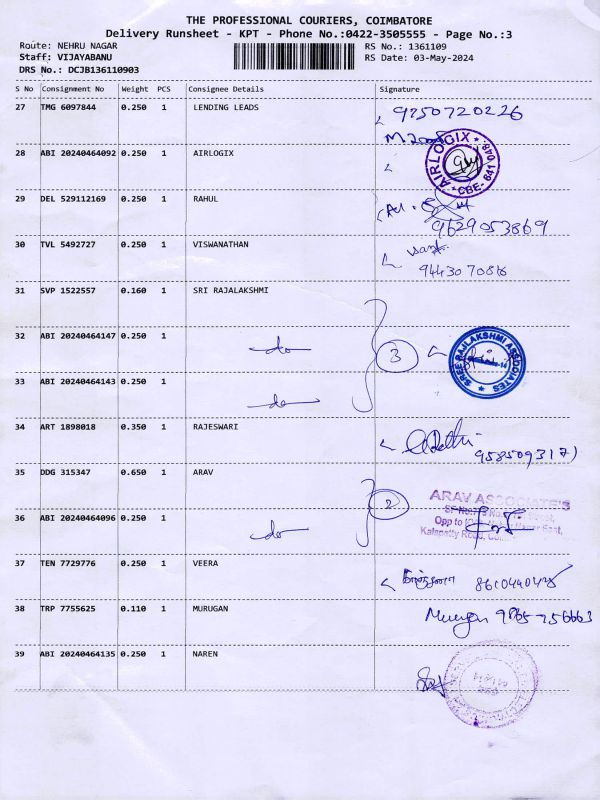 THE PROFESSIONAL COURIERS, COIMBATORE
Delivery Runsheet - KPT - Phone No.:0422-3505555 - Page No.:3
Route: NEHRU NAGAR RS No.: 1361109
Staff: VIJAYABANU RS Date: 03-May-2024
DRS No.: DCJB136110903
S No Consignment No Weight PCS Consignee Details Signature
27 TMG 6097844 0.250 1 LENDING LEADS 9250720226
28 ABI 20240464092 0.250 1 AIRLOGIX
AIRLOGIX CBE- 641 048
29 DEL 529112169 0.250 1 RAHUL
9629053869
30 TVL 5492727 0.250 1 VISWANATHAN
31 SVP 1522557 0.160 1 SRI RAJALAKSHMI
32 ABI 20240464147 0.250 1 do 3
SREE RAJLAKSHMI ASSOCIATES
33 ABI 20240464143 0.250 1 do
34 ART 1898018 0.350 1 RAJESWARI
35 DDG 315347 0.650 1 ARAV 2
ARAV ASSOCIATE'S
36 ABI 20240464096 0.250 1 do
Opp to
Kalapatty Road,
37 TEN 7729776 0.250 1 VEERA
38 TRP 7755625 0.110 1 MURUGAN Murugan 9865756663
39 ABI 20240464135 0.250 1 NAREN